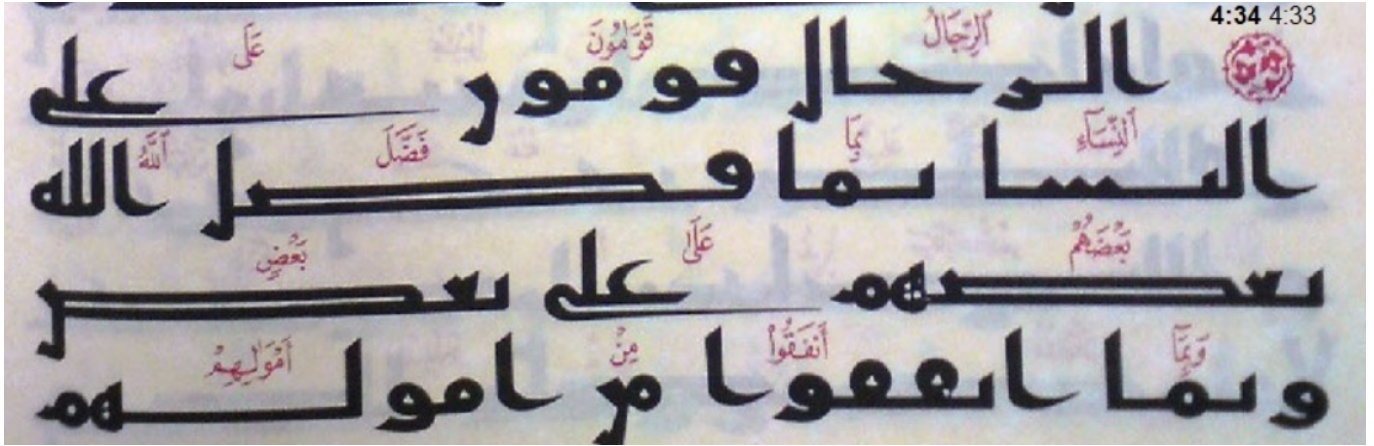 4:34 4:33
ٱلرِّجَالُ قَوَّٰمُونَ عَلَى
الرجال قومون على
ٱلنِّسَآءِ بِمَا فَضَّلَ ٱللَّهُ
النسا بما فضل الله
بَعْضَهُمْ عَلَىٰ بَعْضٍ
بعضهم على بعض
وَبِمَآ أَنفَقُوا۟ مِنْ أَمْوَٰلِهِمْ
وبما انفقوا من امولهم